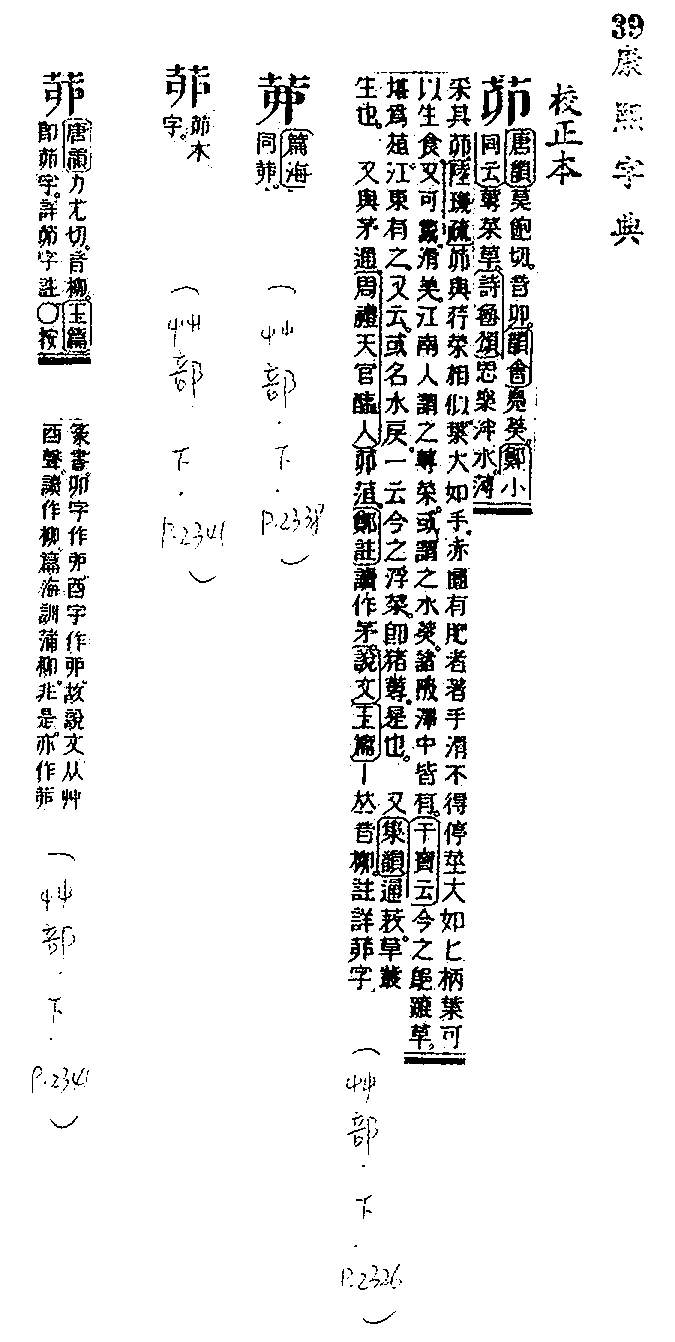 39 康熙字典
校正本
茆
唐韻莫飽切。音卯。韻會鳧葵。鄭小
同云蓴菜草。詩魯頌思樂泮水。薄
采其茆陸璣疏茆與荇菜相似。葉大如手。赤圓有肥者著手滑不得停莖大如匕柄葉可
以生食。又可鬻。滑美。江南人謂之蓴菜。或謂之水葵。諸陂澤中皆有。干寶云今之䴙蹏草。
堪爲菹。江東有之。又云。或名水戾。一云今之浮菜。卽猪蓴。是也。 又集韻通菽。草叢
生也。 又與茅通。周禮天官醢人茆菹。鄭註讀作茅。說文玉篇丨𠀤音柳。註詳茆字
(艸部.下.P.2326)
篇海
同茆。
(艸部.下.P.2338)
茆本
字。
(艸部.下.P.2341)
唐韻力尤切。音柳。玉篇
卽茆字。詳茆字註○按
篆書。卯字作丣。酉字作丣。故說文从艸
酉聲。讀作柳。篇海訓蒲柳。非是。亦作茆
(艸部.下.P.2341)